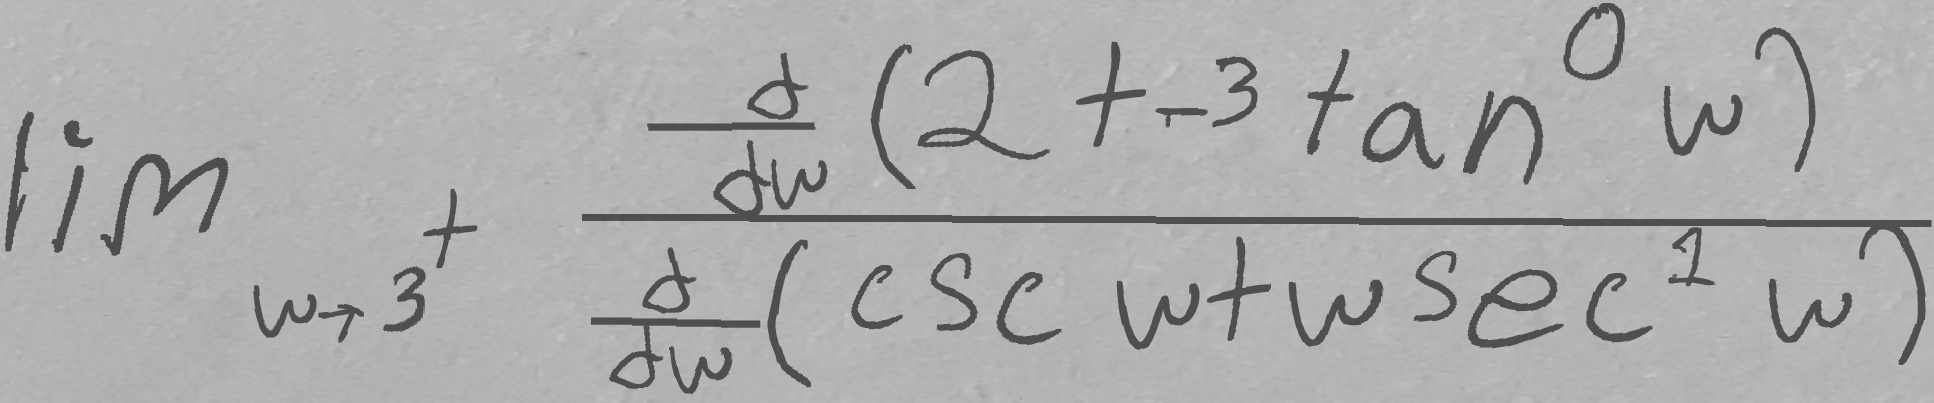 \lim_{w \to 3^+} \frac{\frac{d}{dw}(2 + -3 \tan^0 w)}{\frac{d}{dw}(\csc w + w \sec^1 w)}